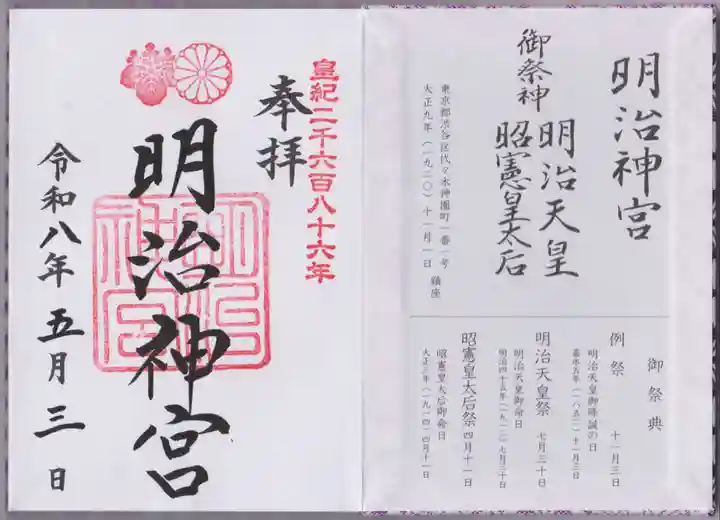 明治神宮
御祭神
明治天皇
昭憲皇太后
東京都渋谷区代々木神園町一番一号
大正九年(一九二〇)十一月一日 鎮座
御祭典
例祭 十一月三日
明治天皇御降誕の日
嘉永五年(一八五二)十一月三日
明治天皇祭 七月三十日
明治天皇御命日
明治四十五年(一九一二)七月三十日
昭憲皇太后祭 四月十一日
昭憲皇太后御命日
大正三年(一九一四)四月十一日
皇紀二千六百八十六年
奉拝
明治神宮
明治
神宮
令和八年五月三日